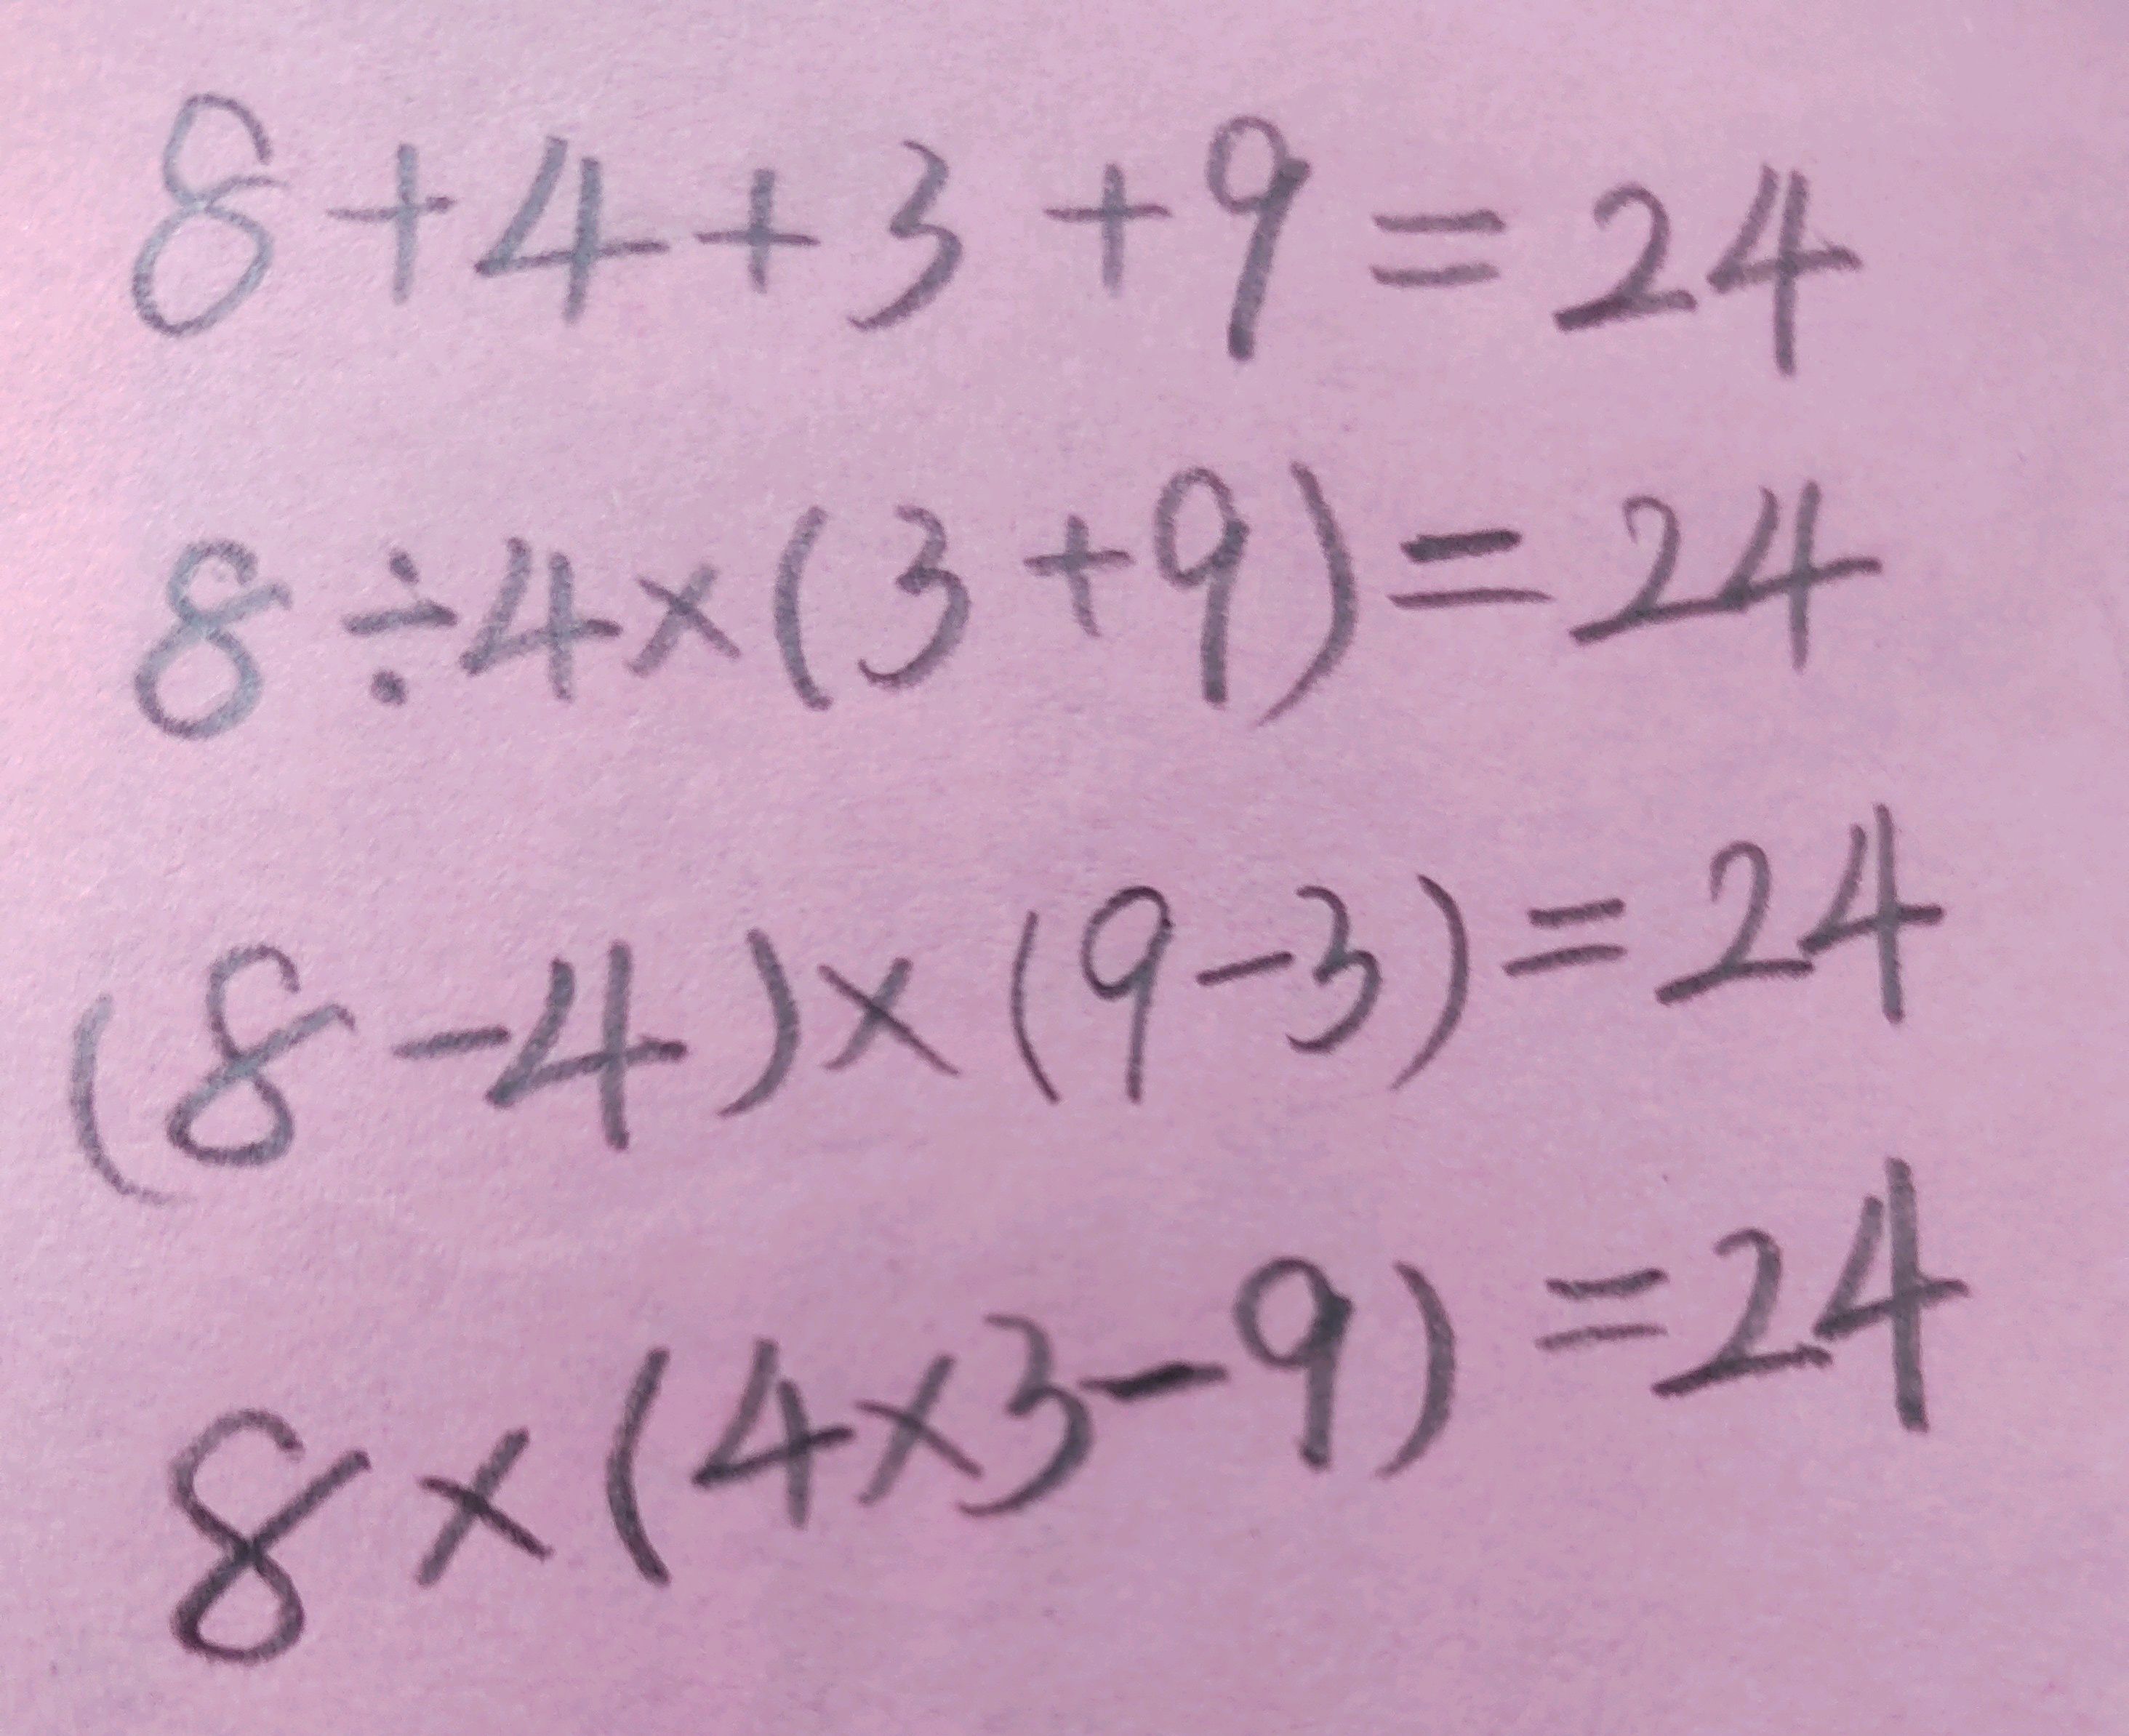 8+4+3+9=24
8÷4×(3+9)=24
(8-4)×(9-3)=24
8×(4×3-9)=24